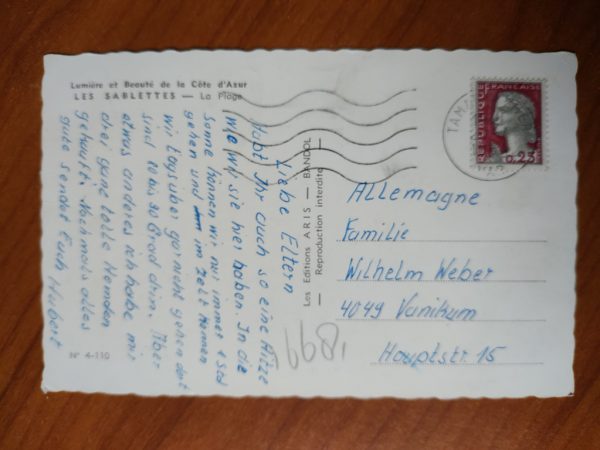 Lumière et Beauté de la Côte d'Azur
LES SABLETTES — La Plage
Liebe Eltern
Habt Ihr auch so eine Hitze
wie wir sie hier haben. In die
Sonne können wir nur immer
gehen und im Zelt können
wir tagsüber gar nicht gehen dort
sind bis 30 Grad drin. Aber
etwas anderes ich habe mir
drei ganz tolle Hemden
gekauft. Nochmals alles
gute sendet Euch Hubert
N° 4-110
Les Editions ARIS — BANDOL
— Reproduction interdite —
1899
REPUBLIQUE FRANÇAISE
0,25
TAM
Allemagne
Familie
Wilhelm Weber
4049 Vanikum
Hauptstr. 15